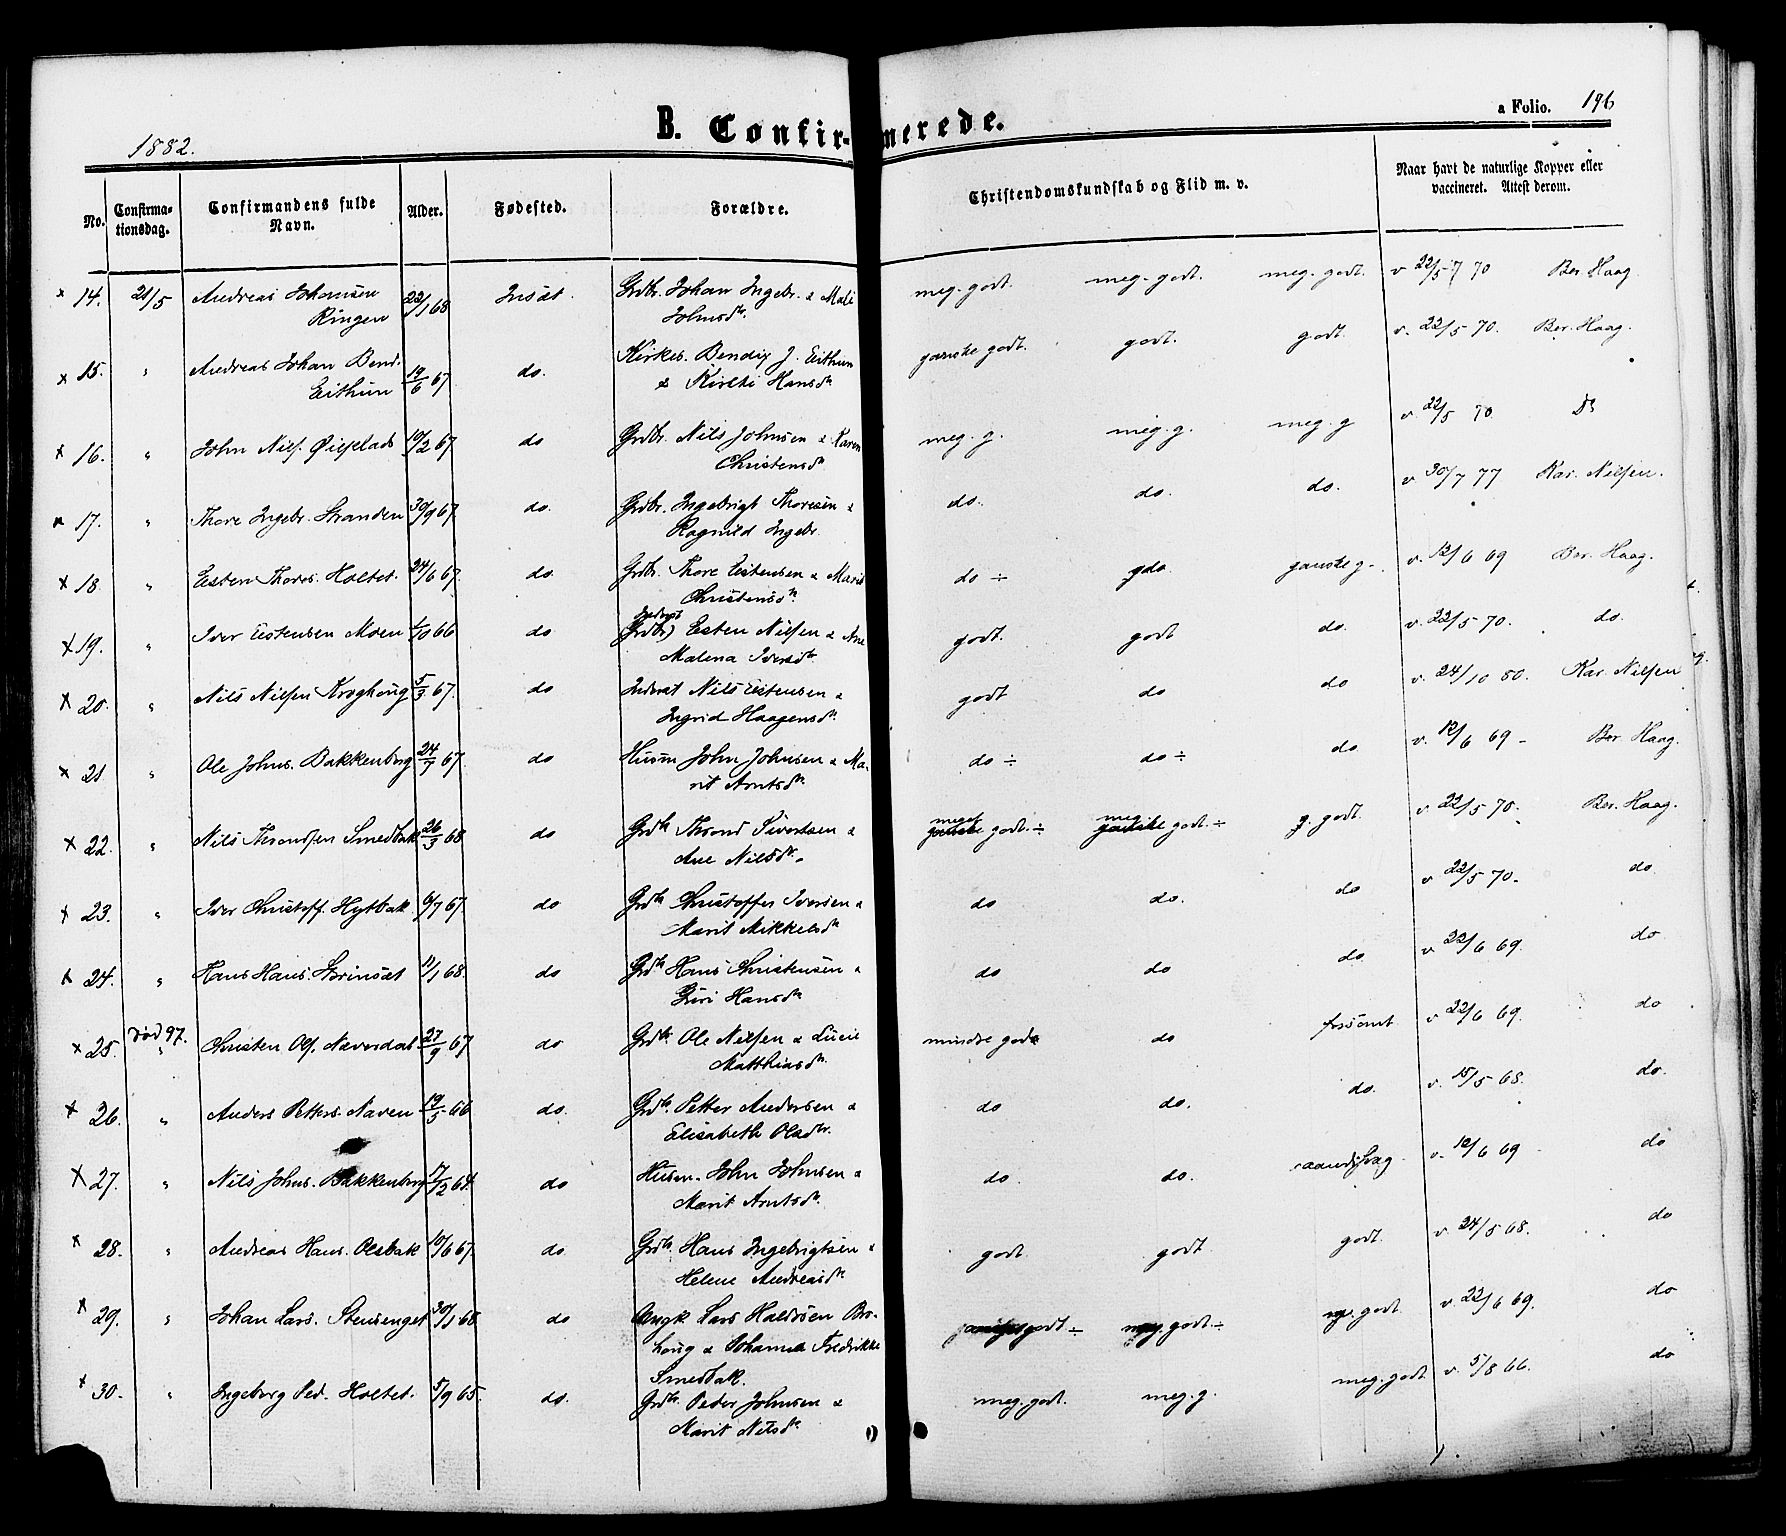 1882.
B. Confirmerede.
a Folio. 196
No. Confirmationsdag. Confirmandens fulde Navn. Alder. Fødested. Forældre. Christendomskundskab og Flid m. v. Naar havt de naturlige Kopper eller vaccineret. Attest derom.
x 14. 21/5 Andreas Johansen 22/1 68 Insæt. Grdbr. Johan Ingebr. & Mali meg. godt. meg. godt. meg. godt. v 22/5 70 Ber. Haag.
Ringen Johnsdtr.
x 15. " Andreas Johan Bend. 19/6 67 do. Kirkes. Bendix J. Eithun ganske godt. godt. godt. v. 22/5 70. Ber. Haag.
Eithun & Kirsti Hansdtr
x 16. " John Nils. Øiesplads 10/2 67 do Grdbr. Nils Johnsen & Karen meg. g. meg. g. meg. g v 22/5 70 Do
Christensdtr
x 17. " Thore Ingebr. Stranden 30/9 67. do. Grdbr. Ingebrigt Thoresen & do. do. do. v 30/7 77 Kar. Nilsen.
Ragnild Ingebr.
x 18. " Esten Thores. Holtet. 24/6 67. do. Grdbr. Thore Estensen & Marit do ÷ do ganske g. v. 12/6 69 Ber. Haag.
Christensdtr.
x 19. " Iver Estensen Moen 1/10 66 do Inderst (Grdbr) Esten Nilsen & Ane godt. godt do. v. 22/5 70. do.
Malena Iversdtr.
x 20. " Nils Nilsen Kroghoug 5/3 67. do Inderst Nils Estensen & godt do do v. 24/10 80. Kar. Nilsen
Ingrid Haagensdtr.
x 21 " Ole Johns. Bakkenberg 24/7 67. do Husm John Johnsen & Ma- do ÷ do ÷ do v. 12/6 69 - Ber Haag.
rit Arntsdtr
x 22. " Nils Throndsen Smedbak 26/3 68 do Grdbr Thrond Sivertsen & meget godt. ÷ meg. godt. ÷ g. godt. v 22/5 70. Ber. Haag.
Ane Nilsdtr.
x 23. " Iver Christoff. Hytbak 6/7 67. do Grdbr Christoffer Iversen & do do. do v 22/5 70. do.
Marit Mikkelsdtr
x 24. " Hans Hans. Storinsæt 11/1 68. do Grdbr Hans Christensen & do do do v 22/6 69. do
Guri Hansdtr
x 25. død 97. " Christen Ols. Næverdal 27/9 67 do Grdbr. Ole Nilsen & Lucie mindre godt do forsømt v 22/6 69. do
Matthiasdtr.
x 26. " Anders Petters. Naven 19/5 66 do. Grdbr. Petter Andersen & do do. do. v. 15/5 68. do.
Elisabeth Olsdtr.
x 27. " Nils Johns. Bakkenberg 17/2 64. do Husm. John Johnsen & do. do. aandssvag. v. 12/6 69 do
Marit Arntsdtr.
x 28. " Andreas Hans. Olsbak 10/6 67. do. Grdbr. Hans Ingebrigtsen & godt. godt. godt. v 24/5 68. do
Helene Andreasdtr
x 29. " Johan Lars. Stensenget 30/1 68. do Ungk Lars Haldosen Bro- godt ÷ meg. godt. ÷ meg. godt. v. 22/6 69. do
houg & Johanna Fredrikke
Smedbak.
x 30. " Ingeborg Ped. Holtet. 5/9 65. do. Grdbr. Peder Johnsen & meg. godt. meg. g. meg. godt v. 5/8 66. do
Marit Nilsdtr